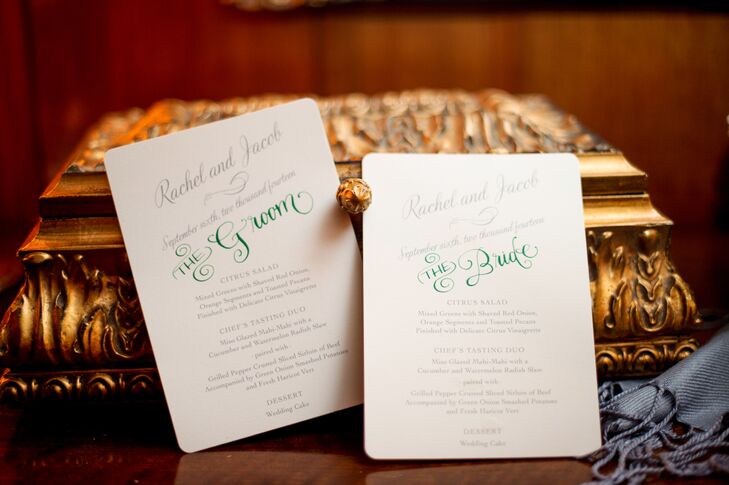 Rachel and Jacob
September sixth, two thousand fourteen
THE Groom
CITRUS SALAD
Mixed Greens with Shaved Red Onion,
Orange Segments and Toasted Pecans
Finished with Delicate Citrus Vinaigrette
CHEF'S TASTING DUO
Miso Glazed Mahi-Mahi with a
Cucumber and Watermelon Radish Slaw
- paired with -
Grilled Pepper Crusted Sliced Sirloin of Beef
Accompanied by Green Onion Smashed Potatoes
and Fresh Haricot Vert
DESSERT
Wedding Cake
Rachel and Jacob
September sixth, two thousand fourteen
THE Bride
CITRUS SALAD
Mixed Greens with Shaved Red Onion,
Orange Segments and Toasted Pecans
Finished with Delicate Citrus Vinaigrette
CHEF'S TASTING DUO
Miso Glazed Mahi-Mahi with a
Cucumber and Watermelon Radish Slaw
- paired with -
Grilled Pepper Crusted Sliced Sirloin of Beef
Accompanied by Green Onion Smashed Potatoes
and Fresh Haricot Vert
DESSERT
Wedding Cake